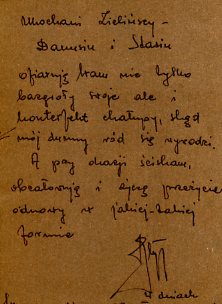 Ukochani Zielińscy -
Danusiu i Stasiu
ofiaruję Wam nie tylko
bazgroły swoje ale i
konterfekt chałupy, skąd
mój dumny ród się wywodzi.
A przy okazji ściskam,
obcałowuję i życzę przeżycia
odnowy w jakiej-takiej
formie
dniach